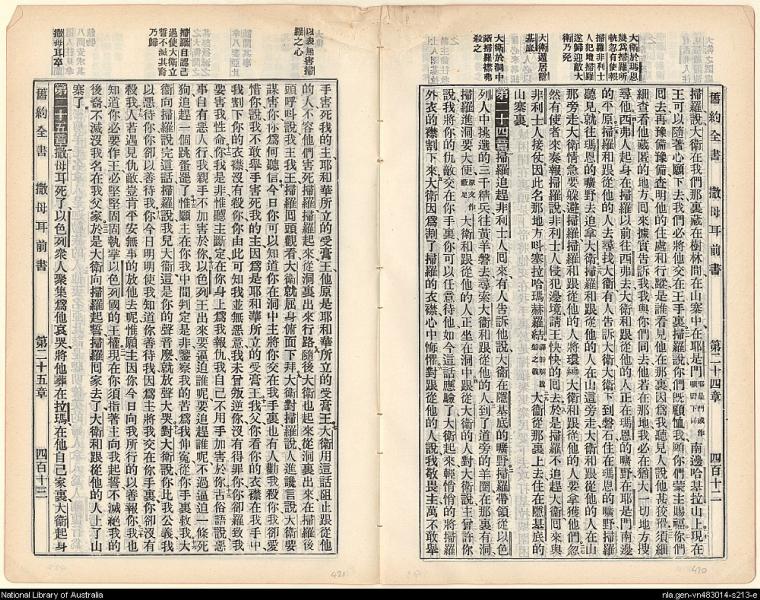 舊約全書 撒母耳前書 第二十四章 四百十二
掃羅說大衛在我們那裏藏在樹林間在山寨中在耶是門南邊哈基拉山上現在
王可以隨著心願下去我們必將他交在王手裏掃羅說你們既顧恤我願你們蒙主賜福你們
回去再豫備豫備查明他的住處和行蹤是誰看見他在那裏因爲我聽見人說他甚狡猾須細
細查看他藏匿的地方回來據實告訴我我與你們同去他若在那地我必在猶大一切地方搜
尋他西弗人起身在掃羅以前往西弗去大衛和跟從他的人正在瑪恩的曠野在耶是門南邊
的平原掃羅和跟從他的人去尋找大衛有人告訴大衛大衛下到磐石住在瑪恩的曠野掃羅
聽見就往瑪恩的曠野去追拿大衛掃羅和跟從他的人在山這旁走大衛和跟從他的人在山
那旁走大衛情急要躲避掃羅掃羅和跟從他的人將環繞大衛和跟從他的人要拿獲他們忽
然有使者來奏報掃羅說非利士人侵犯邊境請王快快的回去於是掃羅不追趕大衛回來與
非利士人接仗因此名那地方叫塞拉哈瑪赫羅結大衛從那裏上去住在隱基底的
山寨裏
第二十四篇掃羅追趕非利士人回來有人告訴他說大衛在隱基底的曠野掃羅帶領從以色
列人中挑選的三千精兵往黃羊磐去尋索大衛和跟從他的人到了道旁的羊圈在那裏有洞
掃羅進洞要大便大衛和跟從他的人正坐在洞中跟從大衛的人對大衛說主曾許你
說我將你的仇敵交在你手裏你可以任意待他如今這話應驗了大衛起來輕悄悄的將掃羅
外衣的襟割下來大衛因爲割了掃羅的衣襟心中惴懼對跟從他的人說我敬畏主萬不敢舉
手害死我的主和華所立的受膏王他原是耶和華所立的受膏王大衛用這話阻止跟從他
的人不容他們害死掃羅掃羅起來從洞裏出來行路隨後大衛也起來從洞裏出來在掃羅後
頭呼叫說我王我主掃羅回頭觀看大衛就屈身俯面下拜大衛對掃羅說人進讒言說大衛要
謀害你你爲何聽信今日你可以知道你在洞中主將你交在我手裏也有人勸我殺你我卻愛
惜你說我不敢舉手害死我的主因爲是耶和華所立的受膏王我父你看你的衣襟在我手中
我割下你的衣襟沒有殺你你由此可知我並無惡意我未曾叛逆你沒有得罪你你卻羅致我
要害我性命你我是非惟聽主斷定在你身上爲我報仇我自己不用手加害於你古俗語說惡
事自有惡人行我親手不加害於你以色列王出來要逼迫誰呢要追趕誰呢不過逼迫一條死
狗追趕一個跳蚤罷了惟願主在你我中間判定是非鑒察我的苦爲我伸冤從你手裏救我大
衛向掃羅說完這話掃羅說我兒大衛這是你的聲音麽就放聲大哭對大衛說你比我公義我
以惡待你你卻以善待我你今日明明使我知道你善待我因爲主將我交在你手裏你卻沒有
殺我人若遇見仇敵豈肯平安無事的放他去呢惟願主因你今日向我所行的以善報你我也
知道你必要作王必堅堅固固執掌以色列國的王權現在你須指著主向我起誓不滅絕我的
後裔不滅沒我的名在我父家於是大衛向掃羅起誓掃羅回家去了大衛和跟從他的人上了山
寨了
第二十五篇撒母耳死了以色列衆人聚集爲他哀哭將他葬在拉瑪在他自己家裏大衛起身
舊約全書 撒母耳前書 第二十五章 四百十三
National Library of Australia
nla.gen-vn483014-s213-e